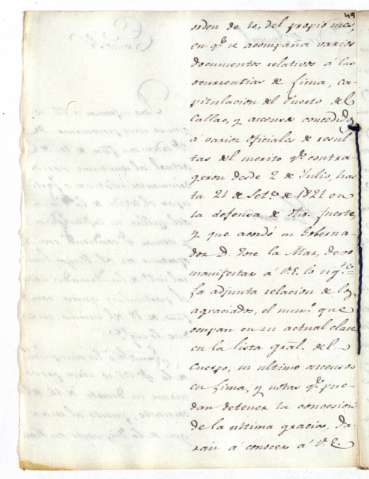 49
orden de 10, del propio mes,
en q.e se acompaña varios
documentos relativos á las
ocurrencias de Lima, ca-
pitulacion del Puerto del
Callao, y accensos concedidos
á varios oficiales de resul
tas del merito q.e contra
geron desde 2 de Julio, has
ta 21 de Set.e de 1821 en
la defensa de fuerte,
y que acordó su Goberna-
dor D. José la Mar, devo
manifestar á V.E. la
adjunta relacion de los
agraciados, el num.o que
ocupan en su actual clase
en la lista gral. del
Cuerpo, su ultimo accenso
en Lima, y notas q.e pue-
dan detener la concesion
de la ultima gracia, da-
rán á conocer á V.E.